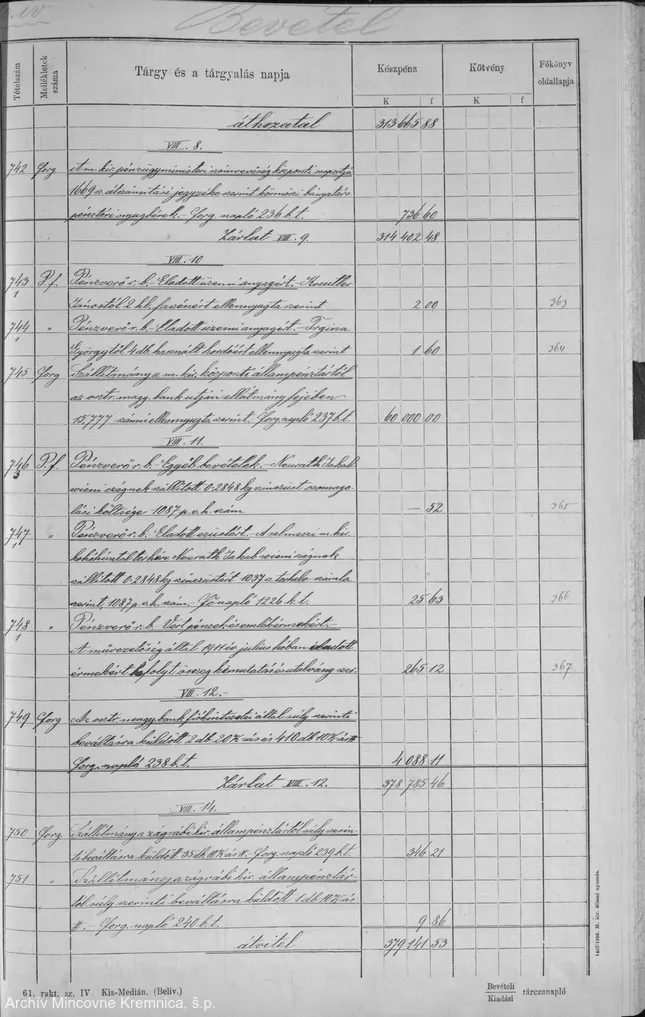 Bevétel
Tételszám
Mellékletek száma
Tárgy és a tárgyalás napja
Készpénz
Kötvény
Főkönyv oldallapja
K f K f
áthozatal 313 665 88
VIII. 8.
742 Forg A m. kir. pénzügyminiszteri számvevőség központi
1669 sz. átszámítási jegyzéke szerint körmöczi bányatárs
pénztári nyugbérek. Forg. napló 236 b.t. 736 60
Zárlat VIII. 9. 314 402 48
VIII. 10
743 P.f. Pénzverő r. b. Eladott üzemi anyagért. Kreutler
1 Jánostól 2 hl. faszénért ellennyugta szerint 2 00 363
744 " Pénzverő r. b. Eladott üzemi anyagért. Trgina
1 Györgytől 4 db. használt hordóért ellennyugta szerint 1 60 364
745 Forg Szállítmány a m. kir. központi állampénztártól
az osztr. magy. bank útján ellátmány fejében
15,777 számú ellennyugta szerint. Forg. napló 237 b.t. 60 000 00
VIII. 11.
746 P.f. Pénzverő r. b. Egyéb bevételek. Neurath Jakab
3 wieni czégnek szállított 0.2848 kg színezüst csomago-
lási költsége 1087 p.v.h. szám — 52 365
747 " Pénzverő r. b. Eladott ezüstért. A selmeczi m. kir.
1 kohóhivatal terhére Neurath Jakab wieni czégnek
szállított 0.2848 kg színezüstért 1037 sz. terhelő számla
szerint, 1087 p.v.h. szám. Főnapló 1226 k.t. 25 63 366
748 " Pénzverő r. b. Vert pénzek és emlékérmekért.
1 A művezetőség által 1911 év julius hóban eladott
érmekért befolyt összeg kimutatás és utalvány szer. 265 12 367
VIII. 12.
749 Forg Az osztr. magy. bank főintézetei által súly szerinti
beváltásra küldött 2 db. 20 K-ás és 410 db 10 K-ás #
Forg. napló 238 b.t. 4 088 11
Zárlat VIII. 12. 378 785 46
VIII. 14.
750 Forg Szállítmány a zágrábi kir. állampénztártól súly szerin-
ti beváltásra küldött 35 db. 10 K-ás #. Forg. napló 239 b.t. 346 21
751 " Szállítmány a zágrábi kir. állampénztár-
tól súly szerinti beváltásra küldött 1 db 10 K-ás
#. Forg. napló 240 b.t. 9 86
átvitel 379 141 53
61. rakt. sz. IV. Kis-Medián. (Beliv.)
Bevételi
Kiadási
tárczanapló
1457/1908. M. kir. állami nyomda.
Archív Mincovne Kremnica, š.p.